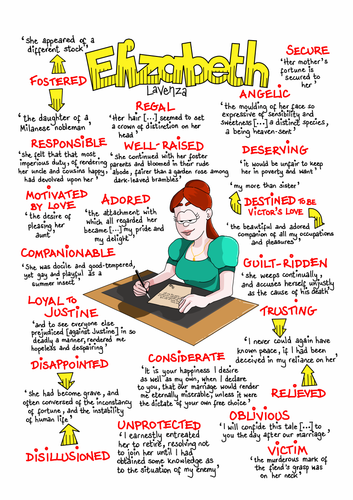 'she appeared of a
different stock'
FOSTERED
'the daughter of a
Milanese nobleman'
Elizabeth
Lavenza
SECURE
'Her mother's
fortune is
secured to
her'
REGAL
'Her hair [...] seemed to set
a crown of distinction on her
head'
ANGELIC
'the moulding of her face so
expressive of sensibility and
sweetness [...] a distinct species,
a being heaven-sent'
RESPONSIBLE
'she felt that that most
imperious duty, of rendering
her uncle and cousins happy,
had devolved upon her'
WELL-RAISED
'She continued with her foster
parents and bloomed in their rude
abode, fairer than a garden rose among
dark-leaved brambles'
DESERVING
'it would be unfair to keep
her in poverty and want'
MOTIVATED
BY LOVE
'the desire of
pleasing her
aunt'
ADORED
'the attachment with
which all regarded her
became [...] my pride and
my delight'
'my more than sister'
DESTINED TO BE
VICTOR'S LOVE
'the beautiful and adored
companion of all my occupations
and pleasures'
COMPANIONABLE
'She was docile and good-tempered,
yet gay and playful as a
summer insect'
GUILT-RIDDEN
'she weeps continually,
and accuses herself unjustly
as the cause of his death'
LOYAL TO
JUSTINE
'and to see everyone else
prejudiced [against Justine] in so
deadly a manner, rendered me
hopeless and despairing'
TRUSTING
'I never could again have
known peace, if I had been
deceived in my reliance on her'
RELIEVED
DISAPPOINTED
'she had become grave, and
often conversed of the inconstancy
of fortune, and the instability
of human life'
DISILLUSIONED
CONSIDERATE
'It is your happiness I desire
as well as my own, when I declare
to you, that our marriage would render
me eternally miserable, unless it were
the dictate of your own free choice.'
OBLIVIOUS
'I will confide this tale [...] to
you the day after our marriage'
UNPROTECTED
'I earnestly entreated
her to retire, resolving not
to join her until I had
obtained some knowledge as
to the situation of my enemy'
VICTIM
'the murderous mark of
the fiend's grasp was
on her neck'